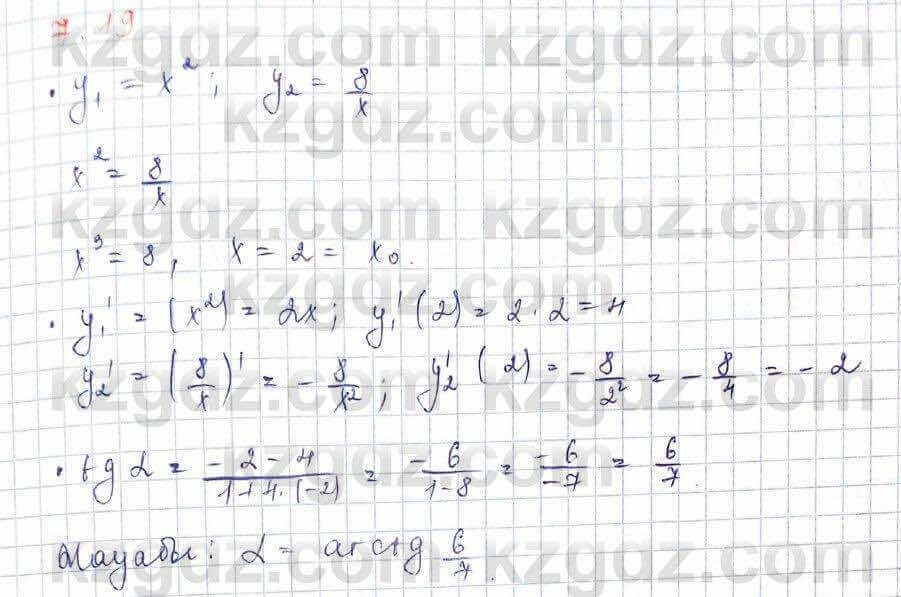 7.19
• y₁ = x²; y₂ = 8/x
x² = 8/x
x³ = 8, x = 2 = x₀.
• y₁' = (x²)' = 2x; y₁'(2) = 2·2 = 4
y₂' = (8/x)' = -8/x²; y₂'(2) = -8/2² = -8/4 = -2
• tg α = (-2-4)/(1+4·(-2)) = -6/(1-8) = -6/-7 = 6/7.
Жауабы: α = arctg 6/7.
kzgdz.com
kzgdz.com
kzgdz.com
kzgdz.com
kzgdz.com
kzgdz.com
kzgdz.com
kzgdz.com
kzgdz.com
kzgdz.com